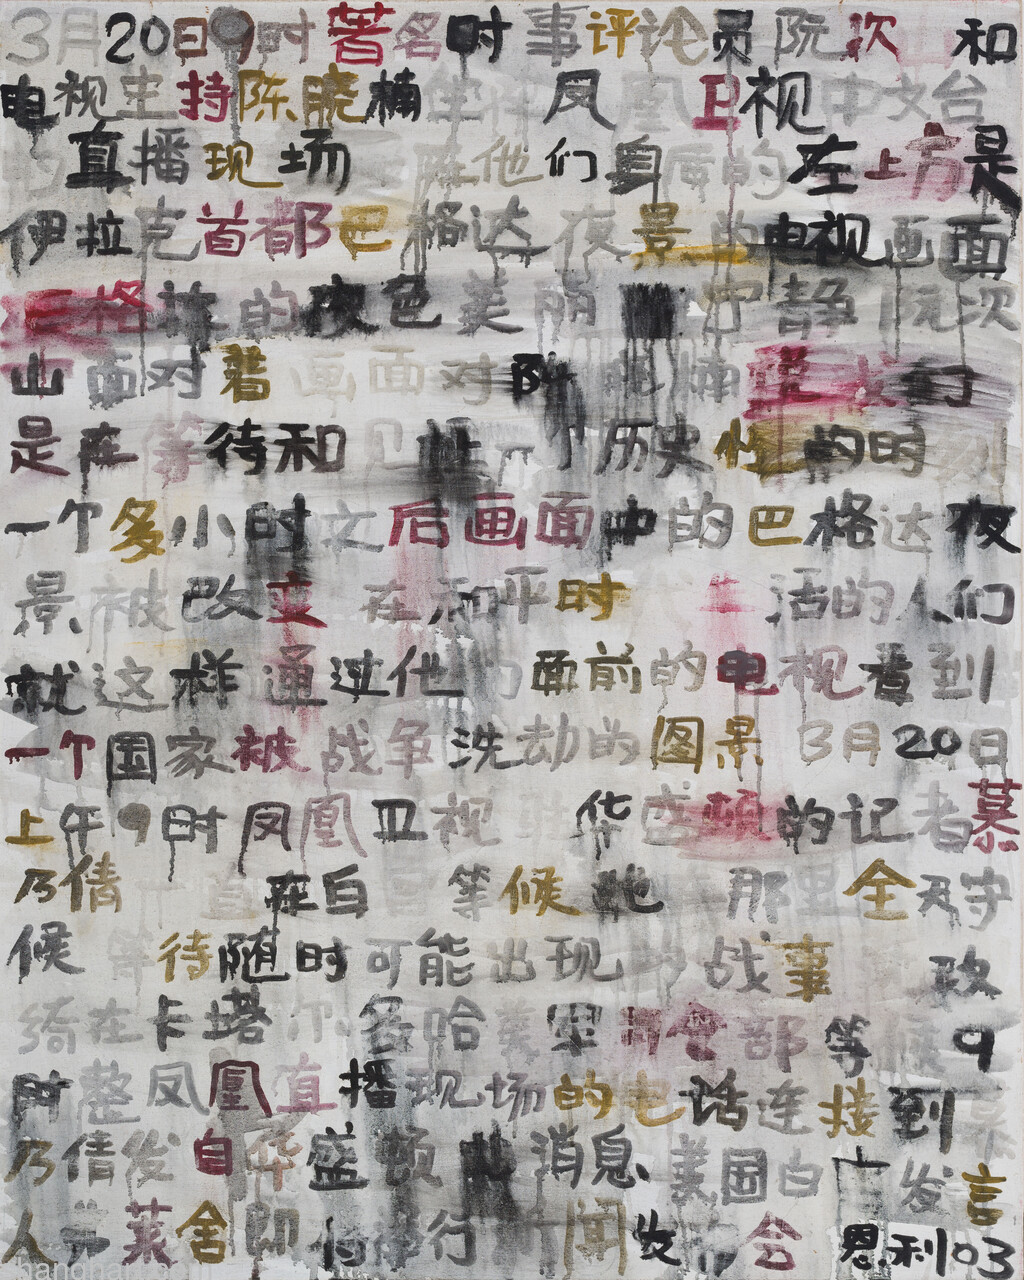 3月20日9时著名时事评论员阮次和
电视主持陈晓楠坐在凤凰卫视中文台
的直播现场 在他们身后的左上方是
伊拉克首都巴格达夜景的电视画面
巴格达的夜色美丽 宁静 阮次
山面对着画面对陈晓楠说我们
是在等待和见证一个历史性的时刻
一个多小时之后画面中的巴格达夜
景被改变 在和平时代生活的人们
就这样通过他们面前的电视看到
一个国家被战争洗劫的图景 3月20日
上午9时凤凰卫视驻华盛顿的记者慕
乃倩一直在白宫等候 她在那里全天守
候 等待随时可能出现的战事 玫
绮在卡塔尔多哈美军司令部等候 9
时整凤凰直播现场的电话连接到慕
乃倩发自华盛顿 消息 美国白宫发言
人 莱舍即将举行 闻发 会 恩利03